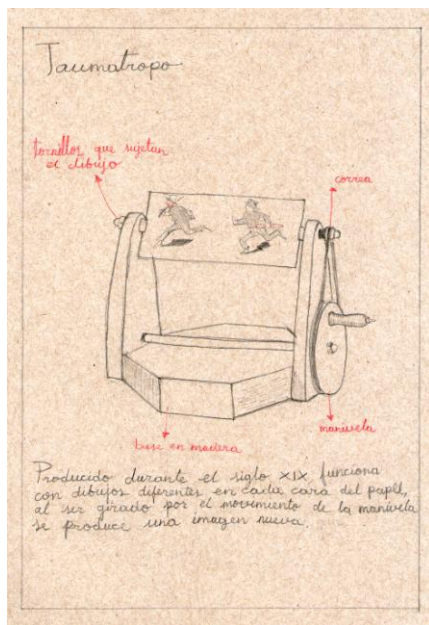 Taumatropo
tornillos que sujetan
el dibujo
correa
manivela
base en madera
Producido durante el siglo XIX, funciona
con dibujos diferentes en cada cara del papel,
al ser girado por el movimiento de la manivela
se produce una imagen nueva.